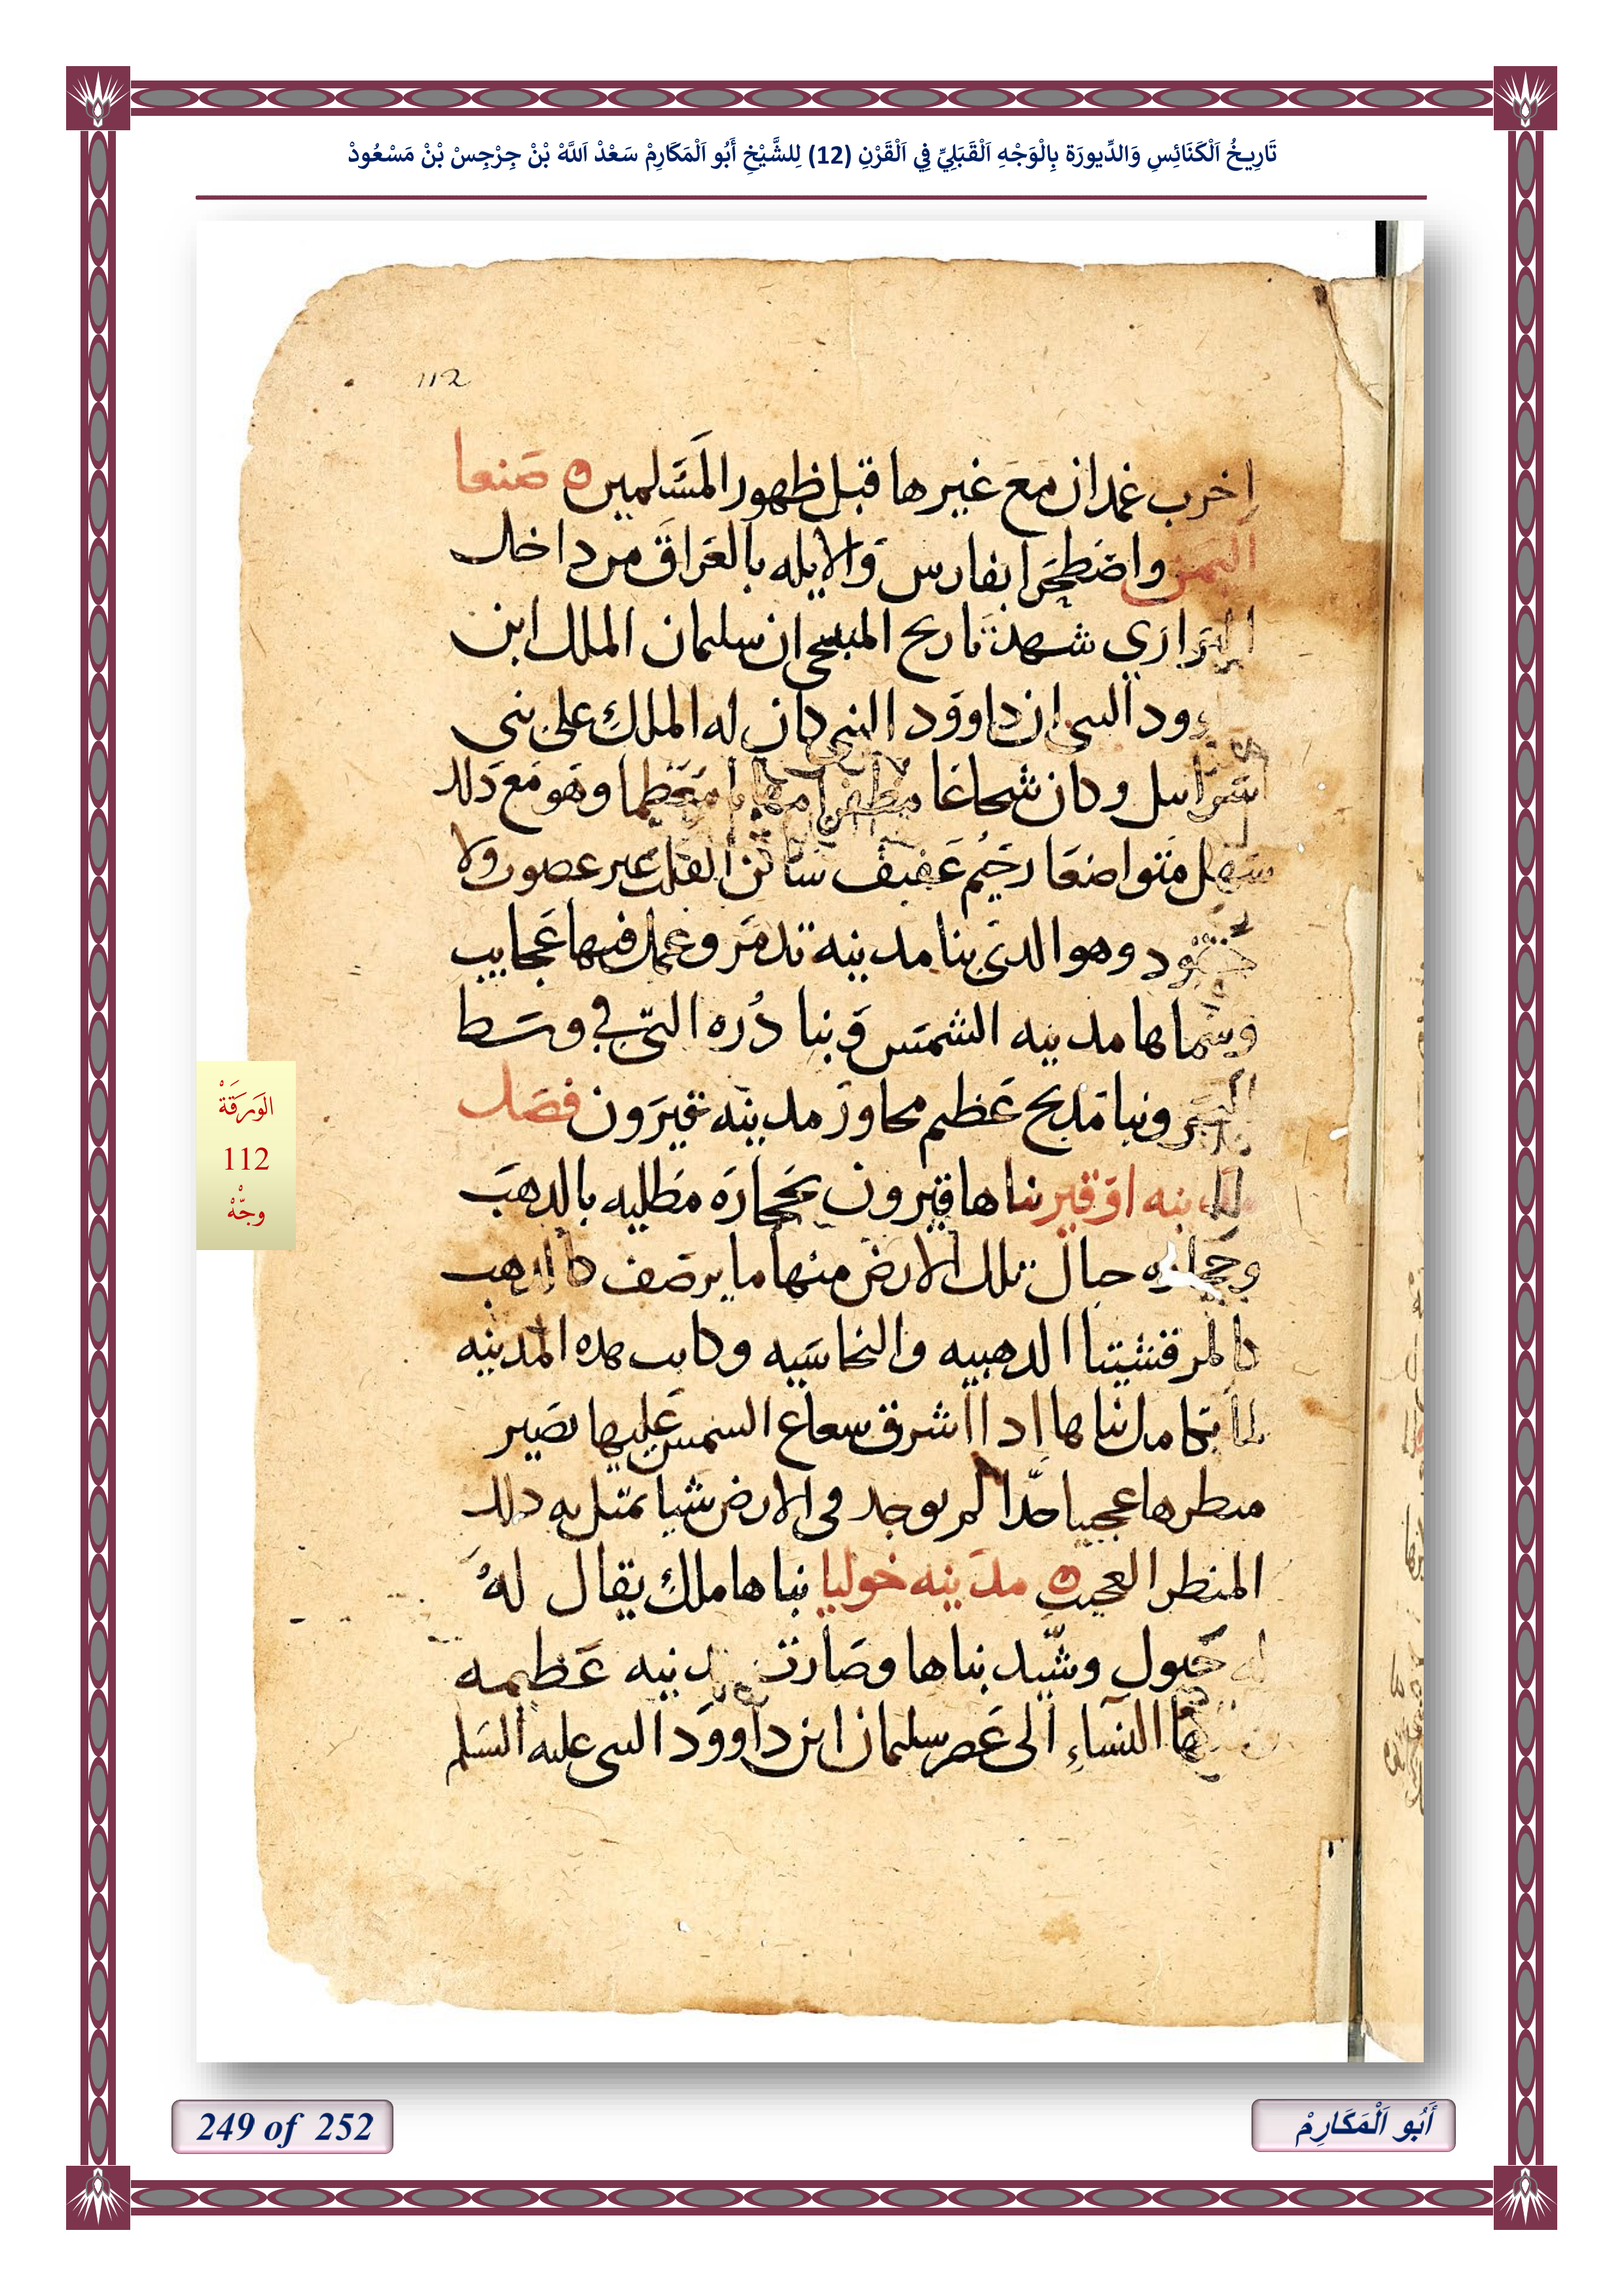 تَارِيخُ اَلْكَنَائِسِ وَالدِّيورَة بِالْوَجْهِ اَلْقَبَلِيِّ فِي اَلْقَرْنِ (12) لِلشَّيْخِ أَبُو اَلْمَكَارِمْ سَعْدْ اَللَّهْ بْنْ جِرْجِسْ بْنْ مَسْعُودْ
112
اخرب غمدان مع غيرها قبل ظهور المسلمين صنعا
اليمن واضطخرا بفارس والايله بالعراق من داخل
البراري شهد تاريخ المسبحي ان سليمان الملك ابن
ود السى ان داوود النبي كان له الملك على بني
اسراسل وكان شجاعا مظفرا معظما وهو مع دلك
سهل متواضعا رحيم عفيف ساكن القلب عير عصوب ولا
حقود وهو الدي بنا مدينه تدمر وعمل فيها عجايب
وسماها مدينه الشمس وبنا دره التي في وسط
البحر وبنا مدبح عظيم مجاور مدينه قيرون فصل
مدينه اوقير بناها قيرون بحجاره مطليه بالدهب
وحجاره جبال تلك الارض منها ما يرصف كالدهب
كالمرقشيتا الدهبيه والنحاسيه وكانت هده المدينه
لما تكامل بناها ادا اشرق سعاع السمس عليها يصير
منطرها عجيبا جدا لم يوجد في الارض شيا يمتل به دلك
المنطر العجيب مدينه خوليا بناها ملك يقال له
له حيول وشيد بناها وصارت مدينه عظيمه
النساء الى عصر سليمان ابن داوود السى عليه السلم
الوَرَقَةْ
112
وجّهْ
249 of 252
أَبُو اَلْمَكَارِمْ